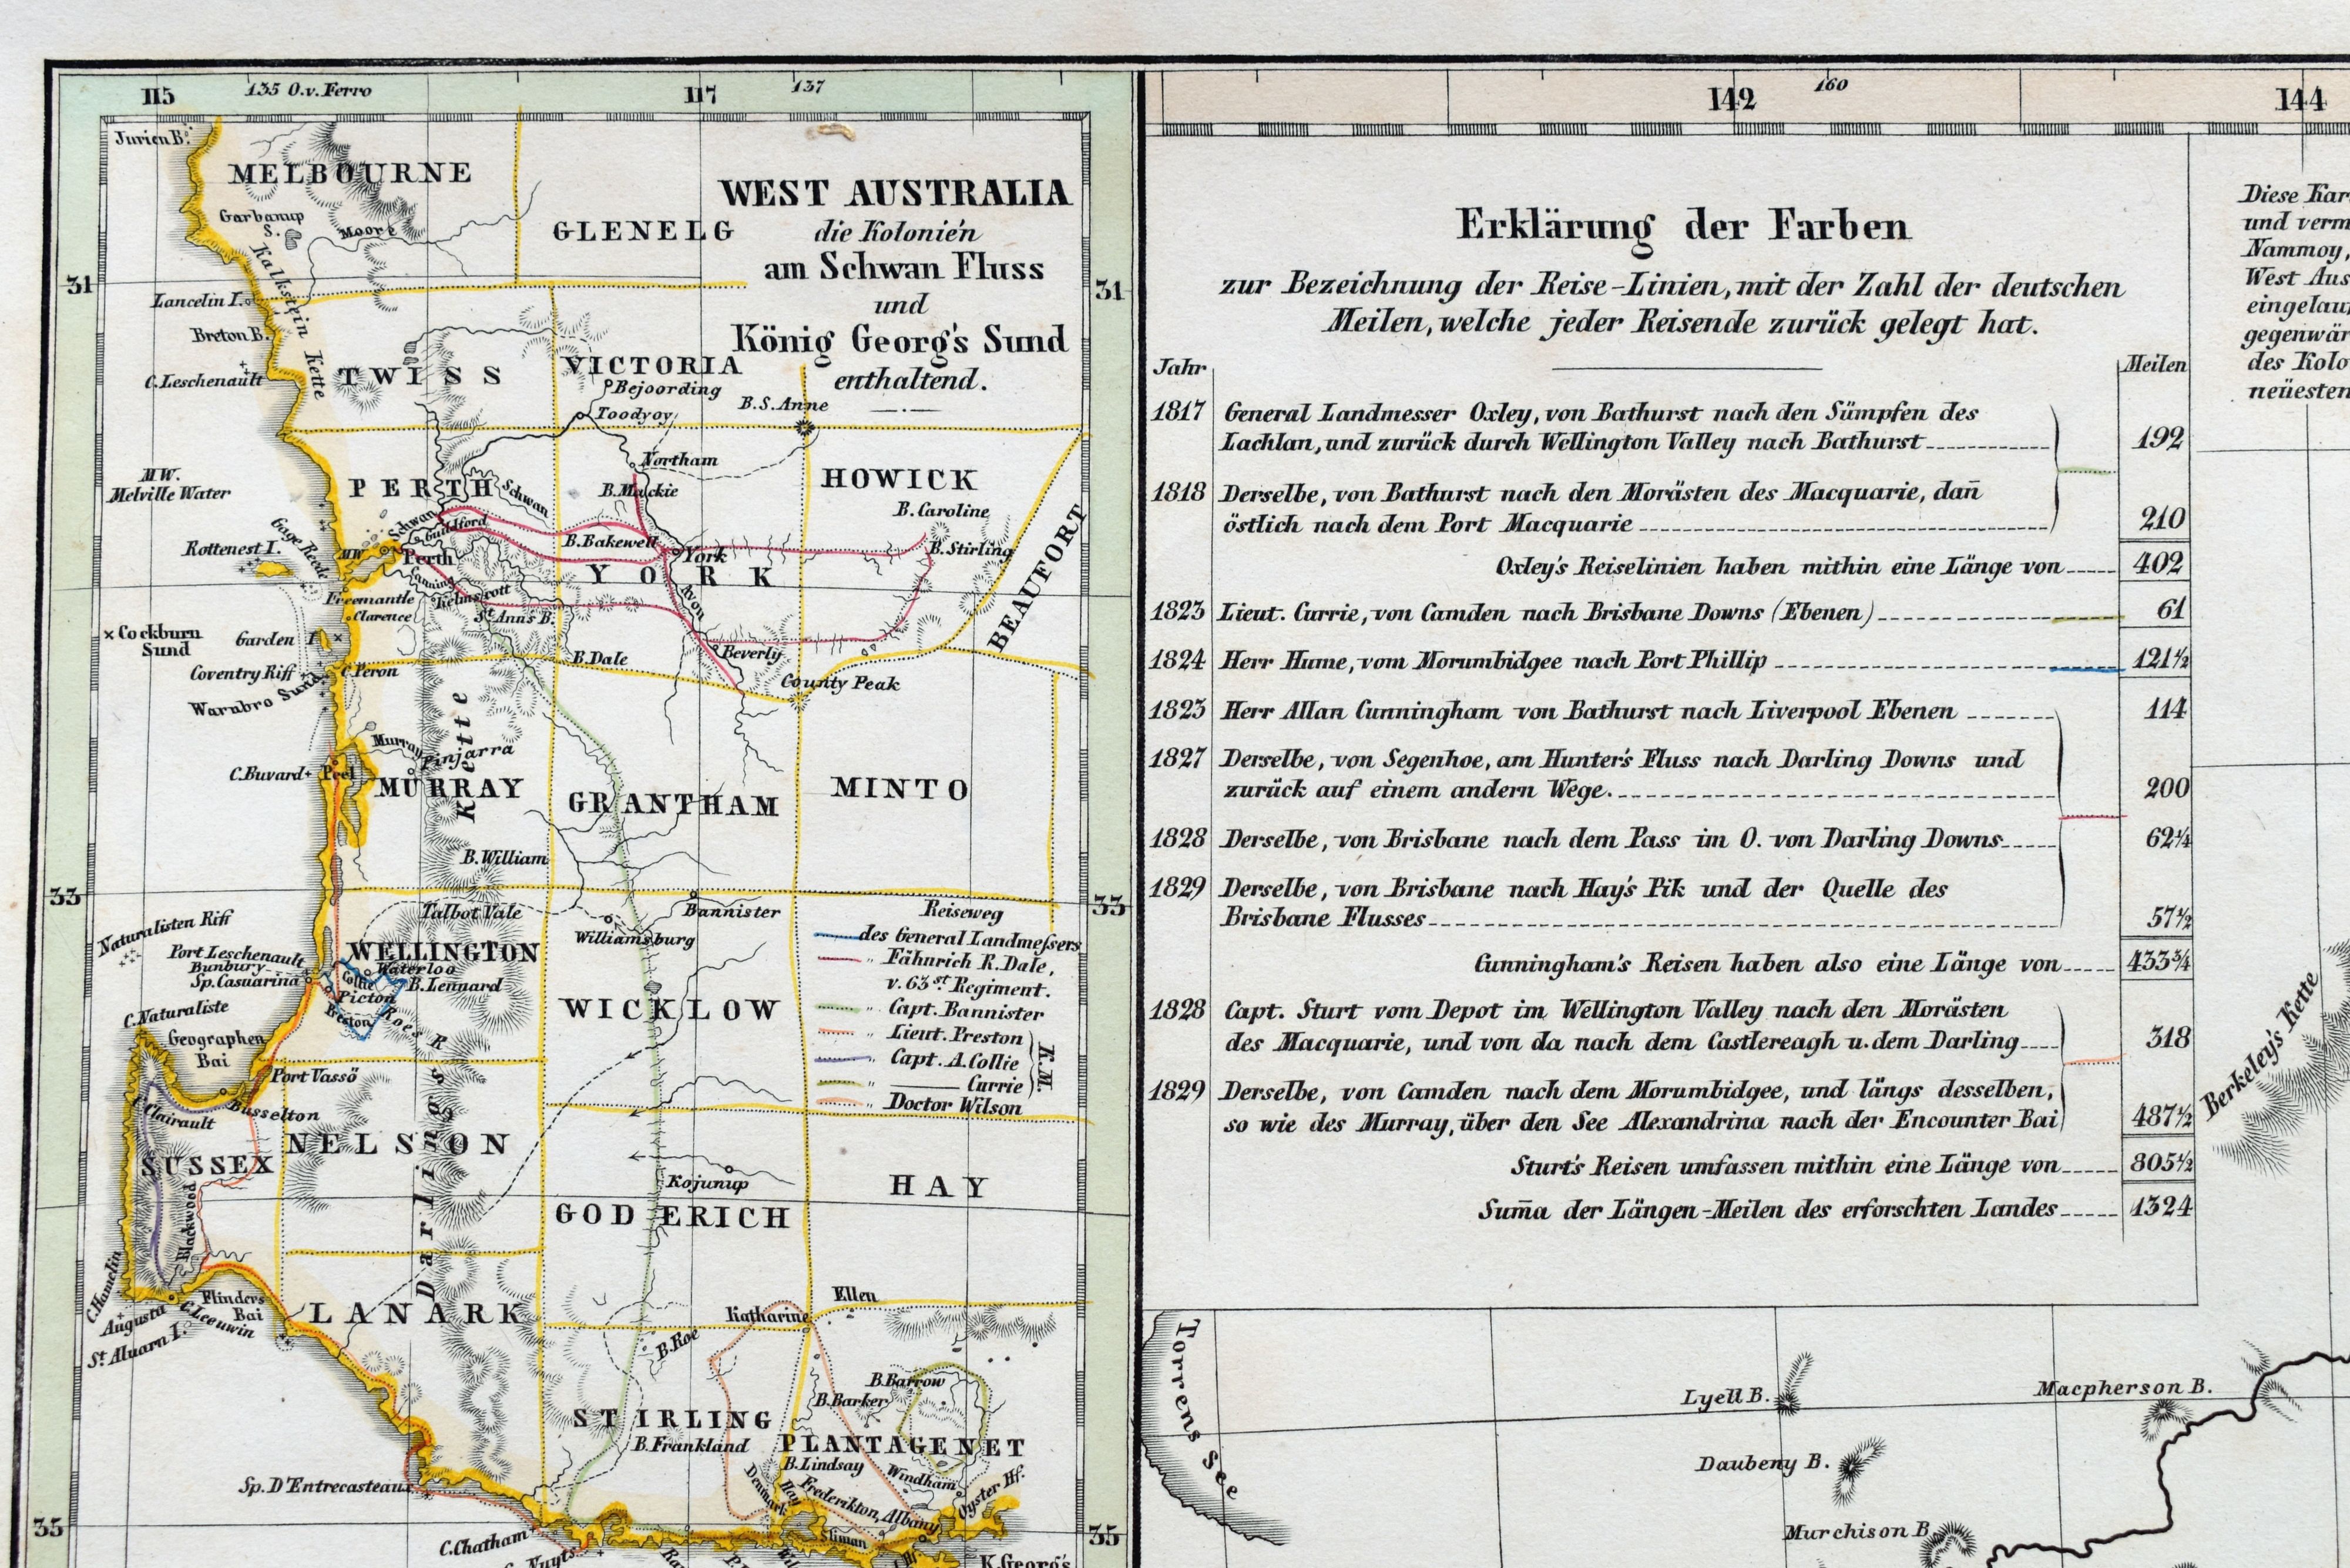 115
135 O.v. Ferro
117
137
Jurien B.
MELBOURNE
Garbanup
S.
Moore
Kalkstein Kette
GLENELG
WEST AUSTRALIA
die Kolonien
am Schwan Fluss
und
König Georg's Sund
enthaltend.
31
31
Lancelin I.
Breton B.
C. Leschenault
TWISS
VICTORIA
Bejoording
Toodyoy
B.S. Anne
MW.
Melville Water
PERTH
Schwan
Northam
B. Mackie
HOWICK
B. Caroline
Rottenest I.
Gage Reede
MW
Schwan
Guildford
Perth
B. Bakewell
York
B. Stirling
BEAUFORT
YORK
Canning
Freemantle
Kelmscott
Clarence
St. Ann's B.
Avon
× Cockburn
Sund
Garden I.
Coventry Riff
C. Peron
Warnbro Sund
B. Dale
Beverly
County Peak
Murray
Pinjarra
C. Buvard
Peel
MURRAY
Kette
GRANTHAM
MINTO
B. William
33
33
Naturalisten Riff
Talbot Vale
Bannister
Williamsburg
Port Leschenault
Bunbury
Sp. Casuarina
WELLINGTON
Waterloo
Collie
B. Lennard
Picton
Roes R
C. Naturaliste
Geographen
Bai
WICKLOW
Reiseweg
des General Landmessers
" Fähnrich R. Dale,
v. 63st. Regiment.
" Capt. Bannister
" Lieut. Preston
" Capt. A. Collie
" —— Currie
K.M.
" Doctor Wilson
Port Vassö
Busselton
C. Clairault
NELSSON
SUSSEX
Blackwood
Darlings
Kojunup
GODERICH
HAY
C. Hamelin
Augusta
C. Leeuwin
St. Aluarn I.
Flinders
Bai
LANARK
Katharine
Ellen
B. Roe
B. Barrow
B. Barker
STIRLING
B. Frankland
PLANTAGENET
B. Lindsay
Windham
Denmark
Hay
Frederikton, Albany
Oyster Hf.
Sp. D'Entrecasteaux
35
35
C. Chatham
Nuyts
K. Georg's
142
160
144
Erklärung der Farben
zur Bezeichnung der Reise-Linien, mit der Zahl der deutschen
Meilen, welche jeder Reisende zurück gelegt hat.
Jahr Meilen
1817 General Landmesser Oxley, von Bathurst nach den Sümpfen des
Lachlan, und zurück durch Wellington Valley nach Bathurst 192
1818 Derselbe, von Bathurst nach den Morästen des Macquarie, dan̄
östlich nach dem Port Macquarie 210
Oxley's Reiselinien haben mithin eine Länge von 402
1823 Lieut. Currie, von Camden nach Brisbane Downs (Ebenen) 61
1824 Herr Hume, vom Morumbidgee nach Port Phillip 121½
1823 Herr Allan Cunningham von Bathurst nach Liverpool Ebenen 114
1827 Derselbe, von Segenhoe, am Hunter's Fluss nach Darling Downs und
zurück auf einem andern Wege. 200
1828 Derselbe, von Brisbane nach dem Pass im O. von Darling Downs 62¼
1829 Derselbe, von Brisbane nach Hay's Pik und der Quelle des
Brisbane Flusses 57½
Cunningham's Reisen haben also eine Länge von 433¾
1828 Capt. Sturt vom Depot im Wellington Valley nach den Morästen
des Macquarie, und von da nach dem Castlereagh u. dem Darling 318
1829 Derselbe, von Camden nach dem Morumbidgee, und längs desselben,
so wie des Murray, über den See Alexandrina nach der Encounter Bai 487½
Sturt's Reisen umfassen mithin eine Länge von 805½
Sum̄a der Längen-Meilen des erforschten Landes 1324
Diese Kar
und verm
Nammoy,
West Aus
eingelau
gegenwär
des Kolo
neüesten
Berkeley's Kette
Torrens See
Lyell B.
Macpherson B.
Daubeny B.
Murchison B.